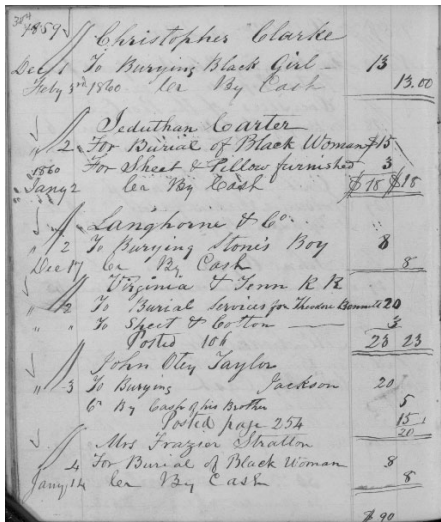 304
1859
Christopher Clarke
Dec 1 To Burying Black Girl — 13
Feby 3rd 1860 Cr By Cash 13.00
Seduthan Carter
" 2 For Burial of Black Woman $15
1860 For Sheet & Pillow furnished 3
Jany 2 Cr By Cash $18 $18
Langhorne & Co
" 2 To Burying Stone's Boy 8
Dec 17 Cr By Cash 8
Virginia & Tenn R R
" 2 To Burial Services for Theodore 20
" " To Sheet & Cotton — 3
Posted 106 23 23
John Otey Taylor
" 3 To Burying Jackson 20
Cr By Cash of his Brother 5
Posted page 254 15
20
Mrs Frazier Stratton
" 4 For Burial of Black Woman 8
Jany 14 Cr By Cash 8
$90